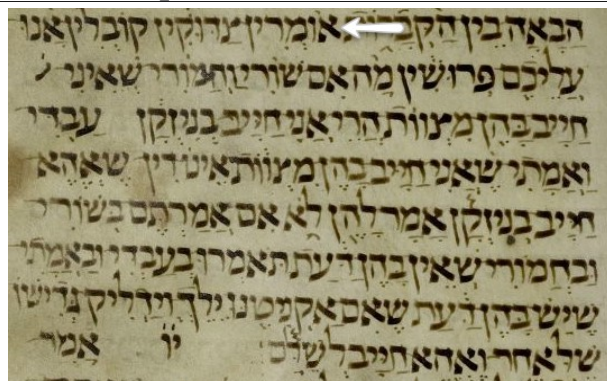 הבאה בין הקברות אומרין צדוקין קובלין אנו
עליכם פרושין מה אם שורי וחמורי שאיני
חייב בהן מצוות הרי אני חייב בניזקן עבדי
ואמתי שאני חייב בהן מצוות אינו דין שאהא
חייב בניזקן אמר להן לא אם אמרתם בשורי
ובחמורי שאין בהן דעת תאמרו בעבדי ובאמתי
שיש בהן דעת שאם אקניטנו ילך וידליק גדישו
שלאחר ואהא חייב לשלם יו אמר